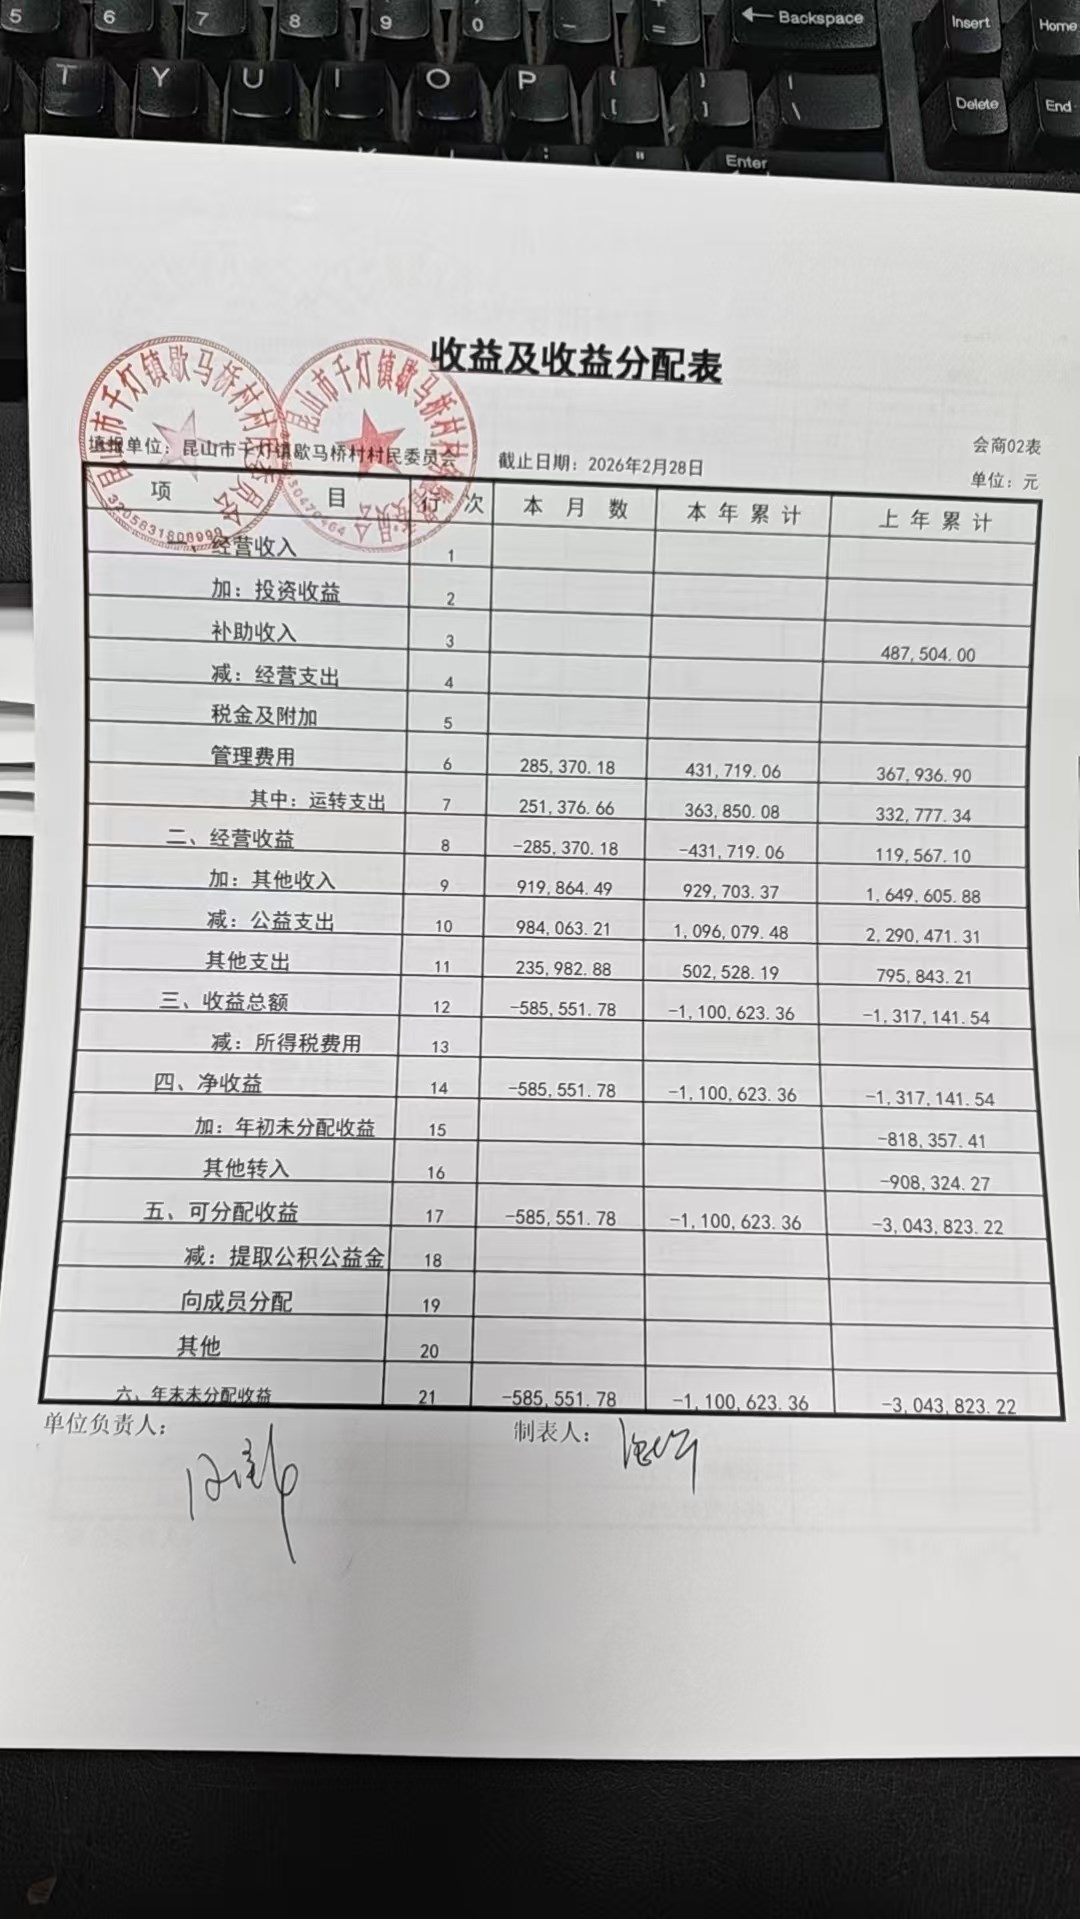 5 6 7 8 9 0 - = Backspace Insert Home
T Y U I O P { [ } ] | \ Delete End
Enter
收益及收益分配表
会商02表
填报单位：昆山市千灯镇歇马桥村村民委员会 截止日期：2026年2月28日 单位：元
项 目 行 次 本 月 数 本 年 累 计 上 年 累 计
一、经营收入 1
加：投资收益 2
补助收入 3 487,504.00
减：经营支出 4
税金及附加 5
管理费用 6 285,370.18 431,719.06 367,936.90
其中：运转支出 7 251,376.66 363,850.08 332,777.34
二、经营收益 8 -285,370.18 -431,719.06 119,567.10
加：其他收入 9 919,864.49 929,703.37 1,649,605.88
减：公益支出 10 984,063.21 1,096,079.48 2,290,471.31
其他支出 11 235,982.88 502,528.19 795,843.21
三、收益总额 12 -585,551.78 -1,100,623.36 -1,317,141.54
减：所得税费用 13
四、净收益 14 -585,551.78 -1,100,623.36 -1,317,141.54
加：年初未分配收益 15 -818,357.41
其他转入 16 -908,324.27
五、可分配收益 17 -585,551.78 -1,100,623.36 -3,043,823.22
减：提取公积公益金 18
向成员分配 19
其他 20
六、年末未分配收益 21 -585,551.78 -1,100,623.36 -3,043,823.22
单位负责人： 制表人：